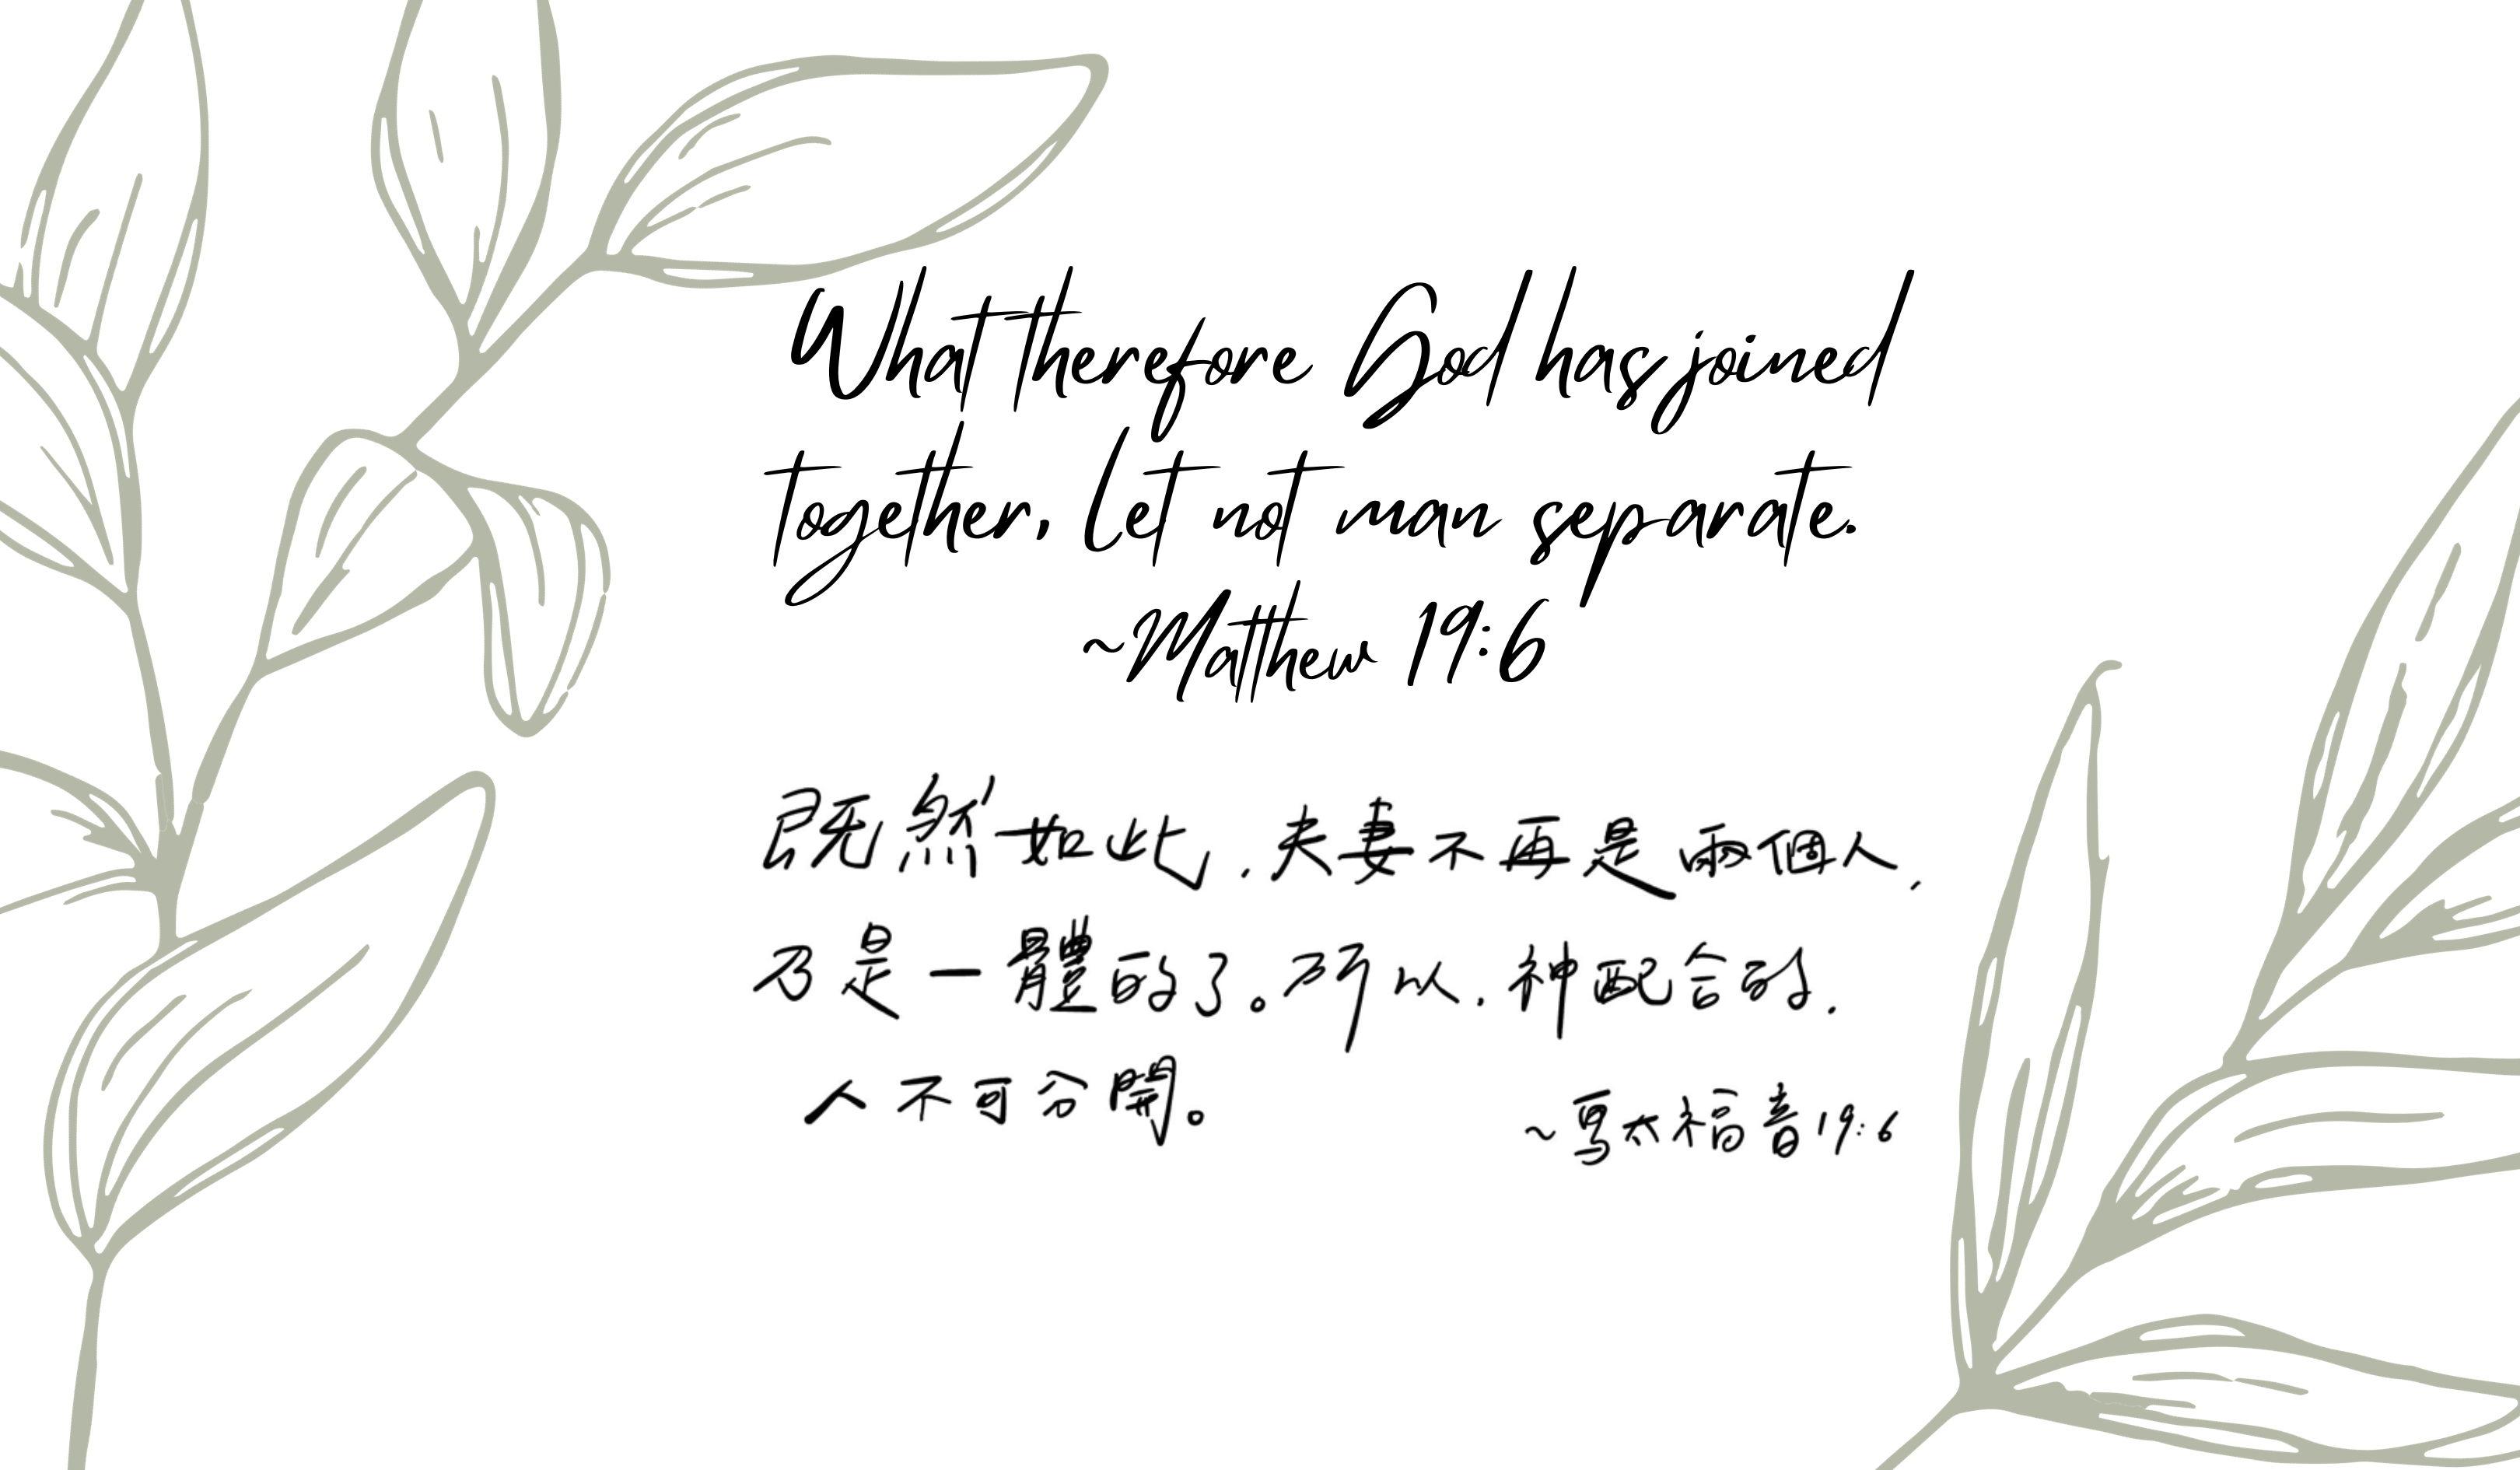 What therefore God has joined
together, let not man separate.
~Matthew 19:6
既然如此,夫妻不再是兩個人,
乃是一體的了。所以,神配合的,
人不可分開。
~馬太福音19:6